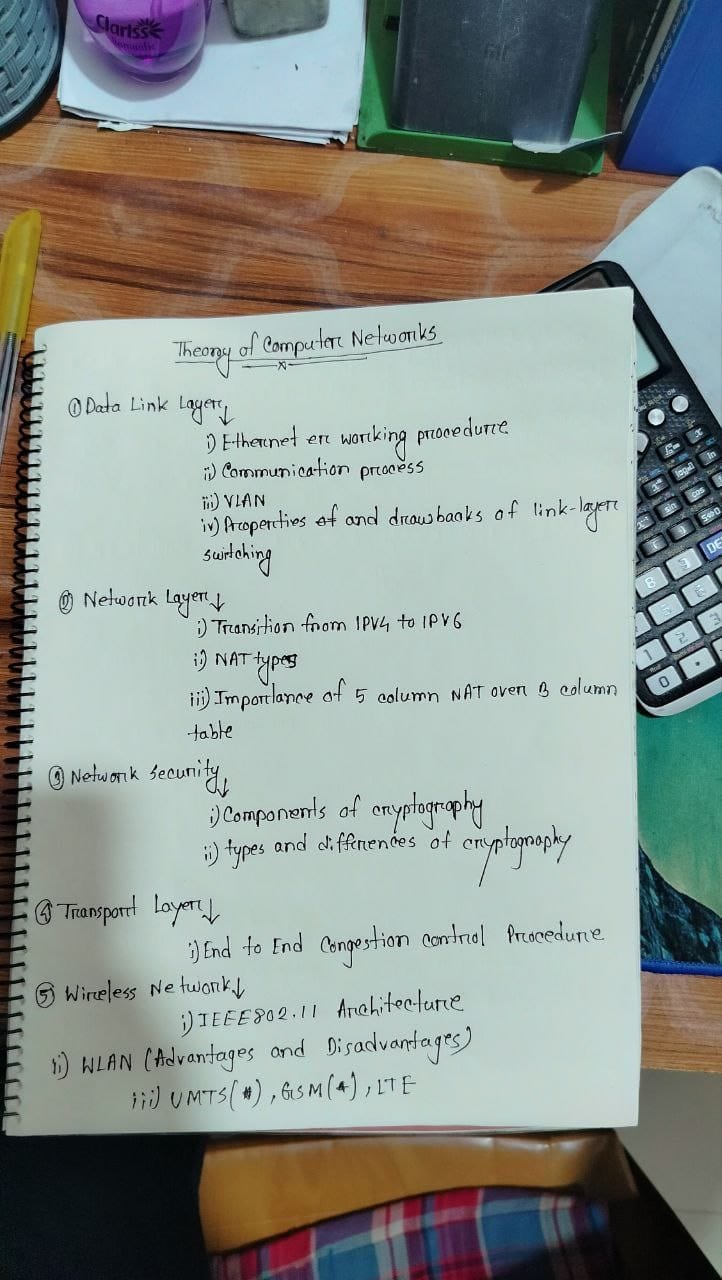 Clariss
Theory of Computer Networks
① Data Link Layer↓
i) Ethernet er working procedure
ii) Communication process
iii) VLAN
iv) Properties of and drawbacks of link-layer
switching
② Network Layer↓
i) Transition from IPV4 to IPV6
ii) NAT types
iii) Importance of 5 column NAT over 3 column
table
③ Network Security↓
i) Components of cryptography
ii) types and differences of cryptography
④ Transport Layer↓
i) End to End Congestion control Procedure
⑤ Wireless Network↓
i) IEEE802.11 Architecture
ii) WLAN (Advantages and Disadvantages)
iii) UMTS(*), GSM(*), LTE